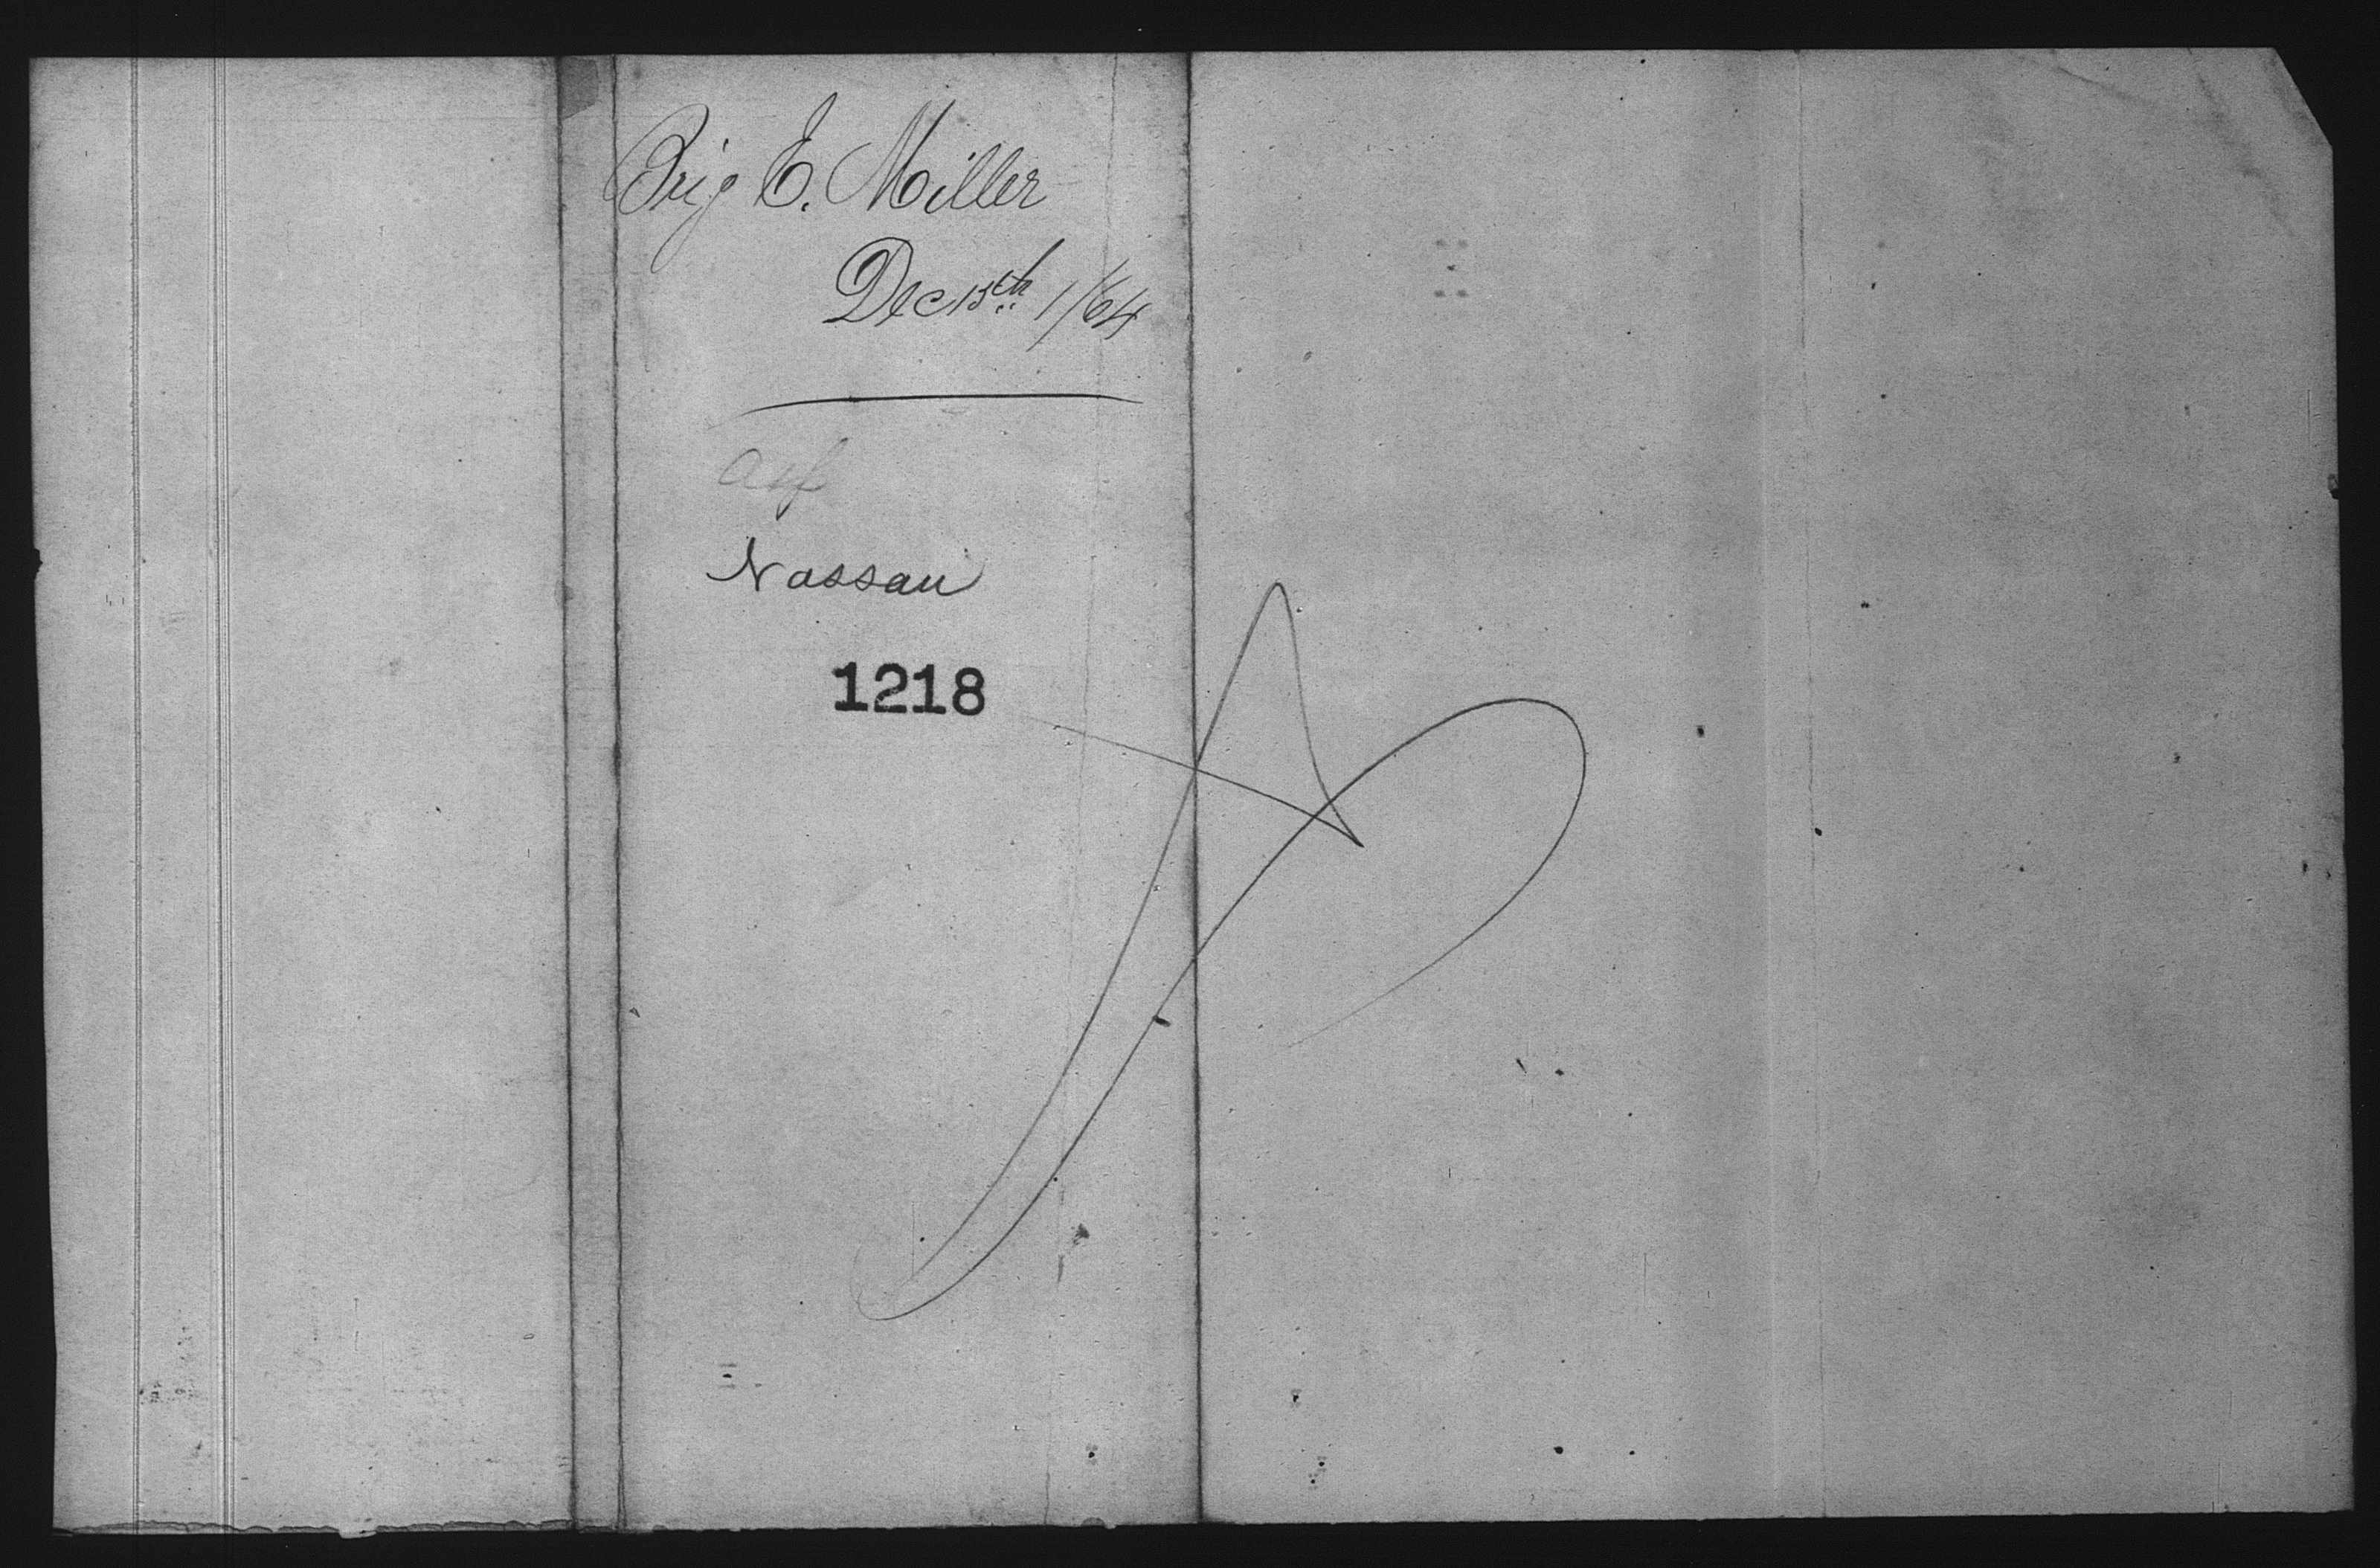 Brig E. Miller
Dec 15th 1/64
Nassau
1218